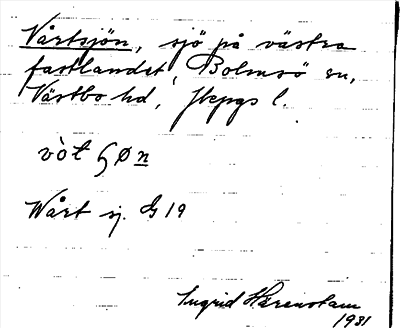 Vårtsjön, sjö på västra
fastlandet, Bolmsö sn,
Västbo hd, Jkpgs l.
vòt ʂøn
Wårt sj. G 19
Ingrid Härenstam
1931